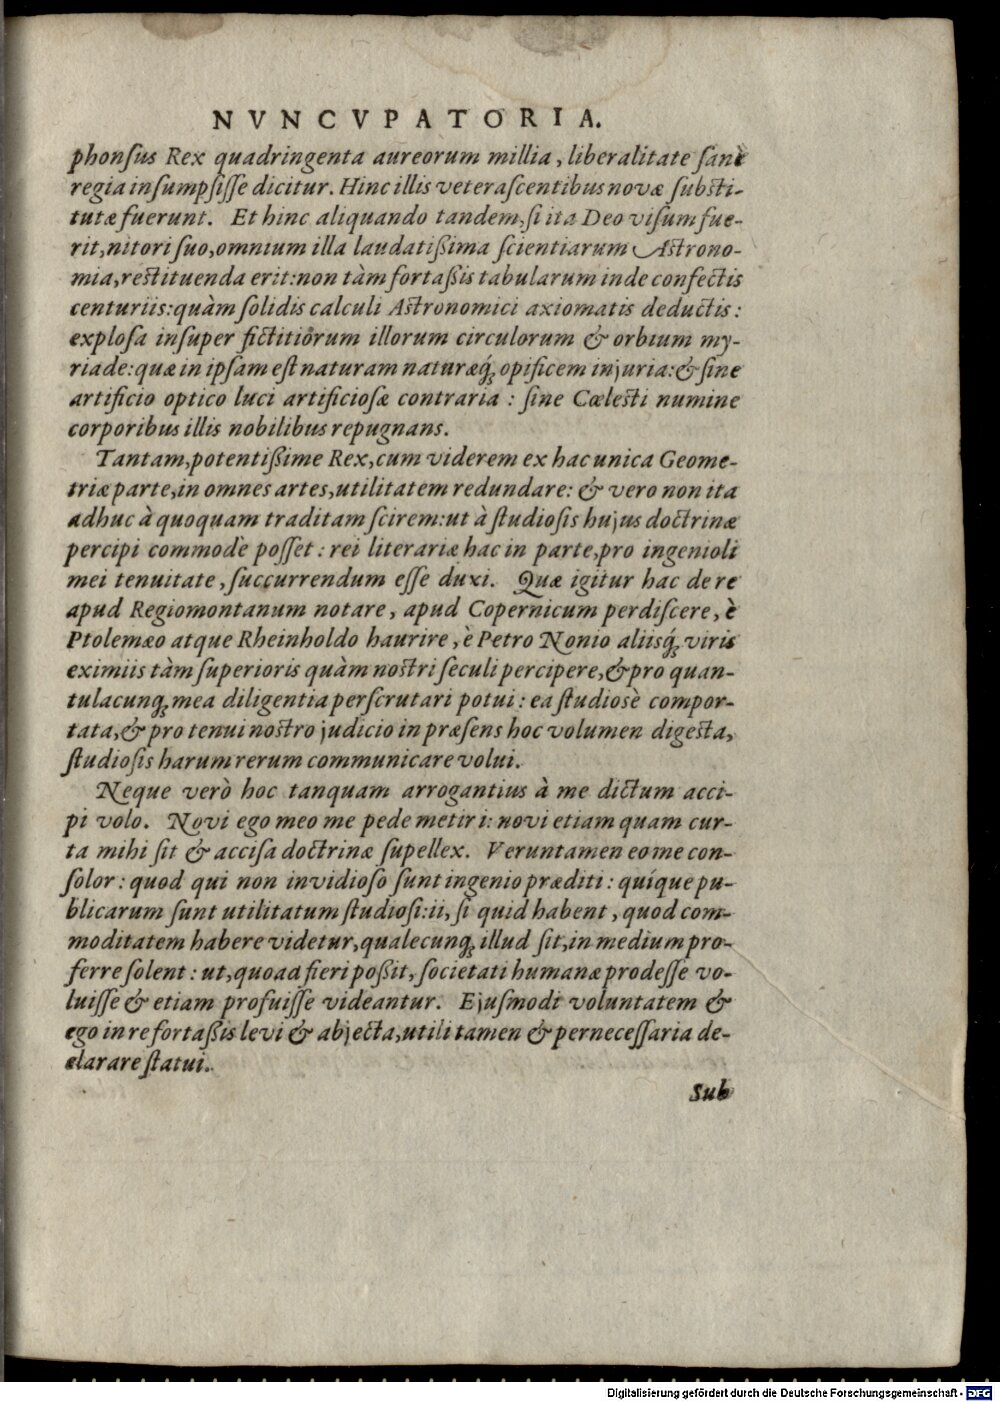 NVNCVPATORIA.
phonſus Rex quadringenta aureorum millia, liberalitate ſanè
regia inſumpſiſſe dicitur. Hinc illis veteraſcentibus novæ ſubſti-
tutæ fuerunt. Et hinc aliquando tandem, ſi ita Deo viſum fue-
rit, nitori ſuo, omnium illa laudatißima ſcientiarum Aſtrono-
mia, reſtituenda erit: non tàm fortaßis tabularum inde confectis
centuriis: quàm ſolidis calculi Aſtronomici axiomatis deductis:
exploſa inſuper fictitiorum illorum circulorum & orbium my-
riade: quæ in ipſam eſt naturam naturæq́; opificem injuria: & ſine
artificio optico luci artificioſæ contraria: ſine Cœleſti numine
corporibus illis nobilibus repugnans.
Tantam, potentißime Rex, cum viderem ex hac unica Geome-
triæ parte, in omnes artes, utilitatem redundare: & vero non ita
adhuc à quoquam traditam ſcirem: ut à ſtudioſis hujus doctrinæ
percipi commodè poſſet: rei literariæ hac in parte, pro ingenioli
mei tenuitate, ſuccurrendum eſſe duxi. Quæ igitur hac de re
apud Regiomontanum notare, apud Copernicum perdiſcere, è
Ptolemæo atque Rheinholdo haurire, è Petro Nonio aliisq́; viris
eximiis tàm ſuperioris quàm noſtri ſeculi percipere, & pro quan-
tulacunq; mea diligentia perſcrutari potui: ea ſtudiosè compor-
tata, & pro tenui noſtro judicio in præſens hoc volumen digeſta,
ſtudioſis harum rerum communicare volui.
Neque verò hoc tanquam arrogantius à me dictum acci-
pi volo. Novi ego meo me pede metiri: novi etiam quam cur-
ta mihi ſit & acciſa doctrinæ ſupellex. Veruntamen eo me con-
ſolor: quod qui non invidioſo ſunt ingenio præditi: quíque pu-
blicarum ſunt utilitatum ſtudioſi: ii, ſi quid habent, quod com-
moditatem habere videtur, qualecunq; illud ſit, in medium pro-
ferre ſolent: ut, quoad fieri poßit, ſocietati humanæ prodeſſe vo-
luiſſe & etiam profuiſſe videantur. Ejuſmodi voluntatem &
ego in re fortaßis levi & abjecta, utili tamen & perneceſſaria de-
clarare ſtatui.
Sub
Digitalisierung gefördert durch die Deutsche Forschungsgemeinschaft - DFG